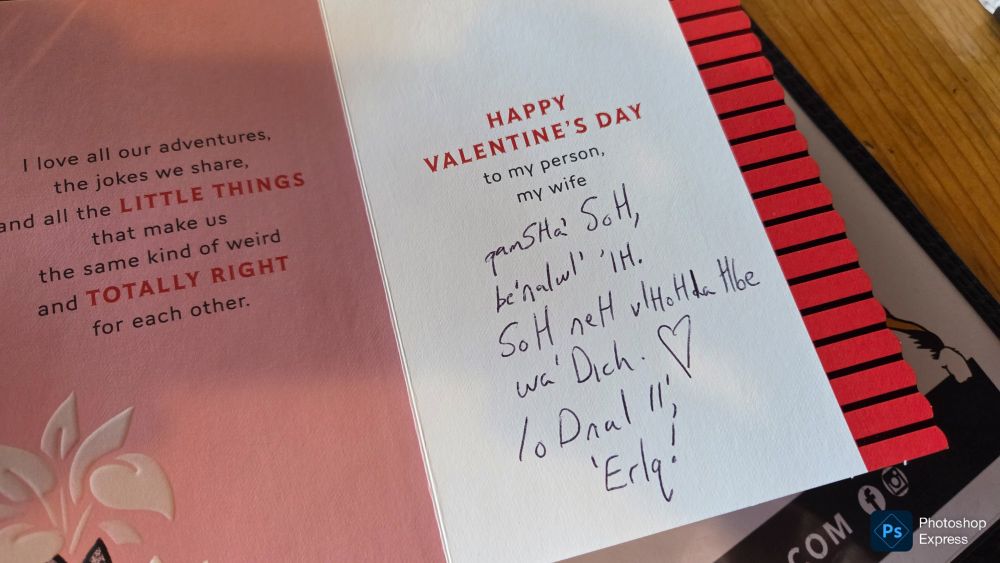 I love all our adventures,
the jokes we share,
and all the LITTLE THINGS
that make us
the same kind of weird
and TOTALLY RIGHT
for each other.
HAPPY
VALENTINE'S DAY
to my person,
my wife
qamSHa' SoH,
be'nalwI' 'IH.
SoH neH vIHoHqa Hbe
wa' DIch. ♡
loDnal lI',
'ErIq!
.COM
Photoshop
Express
Ps